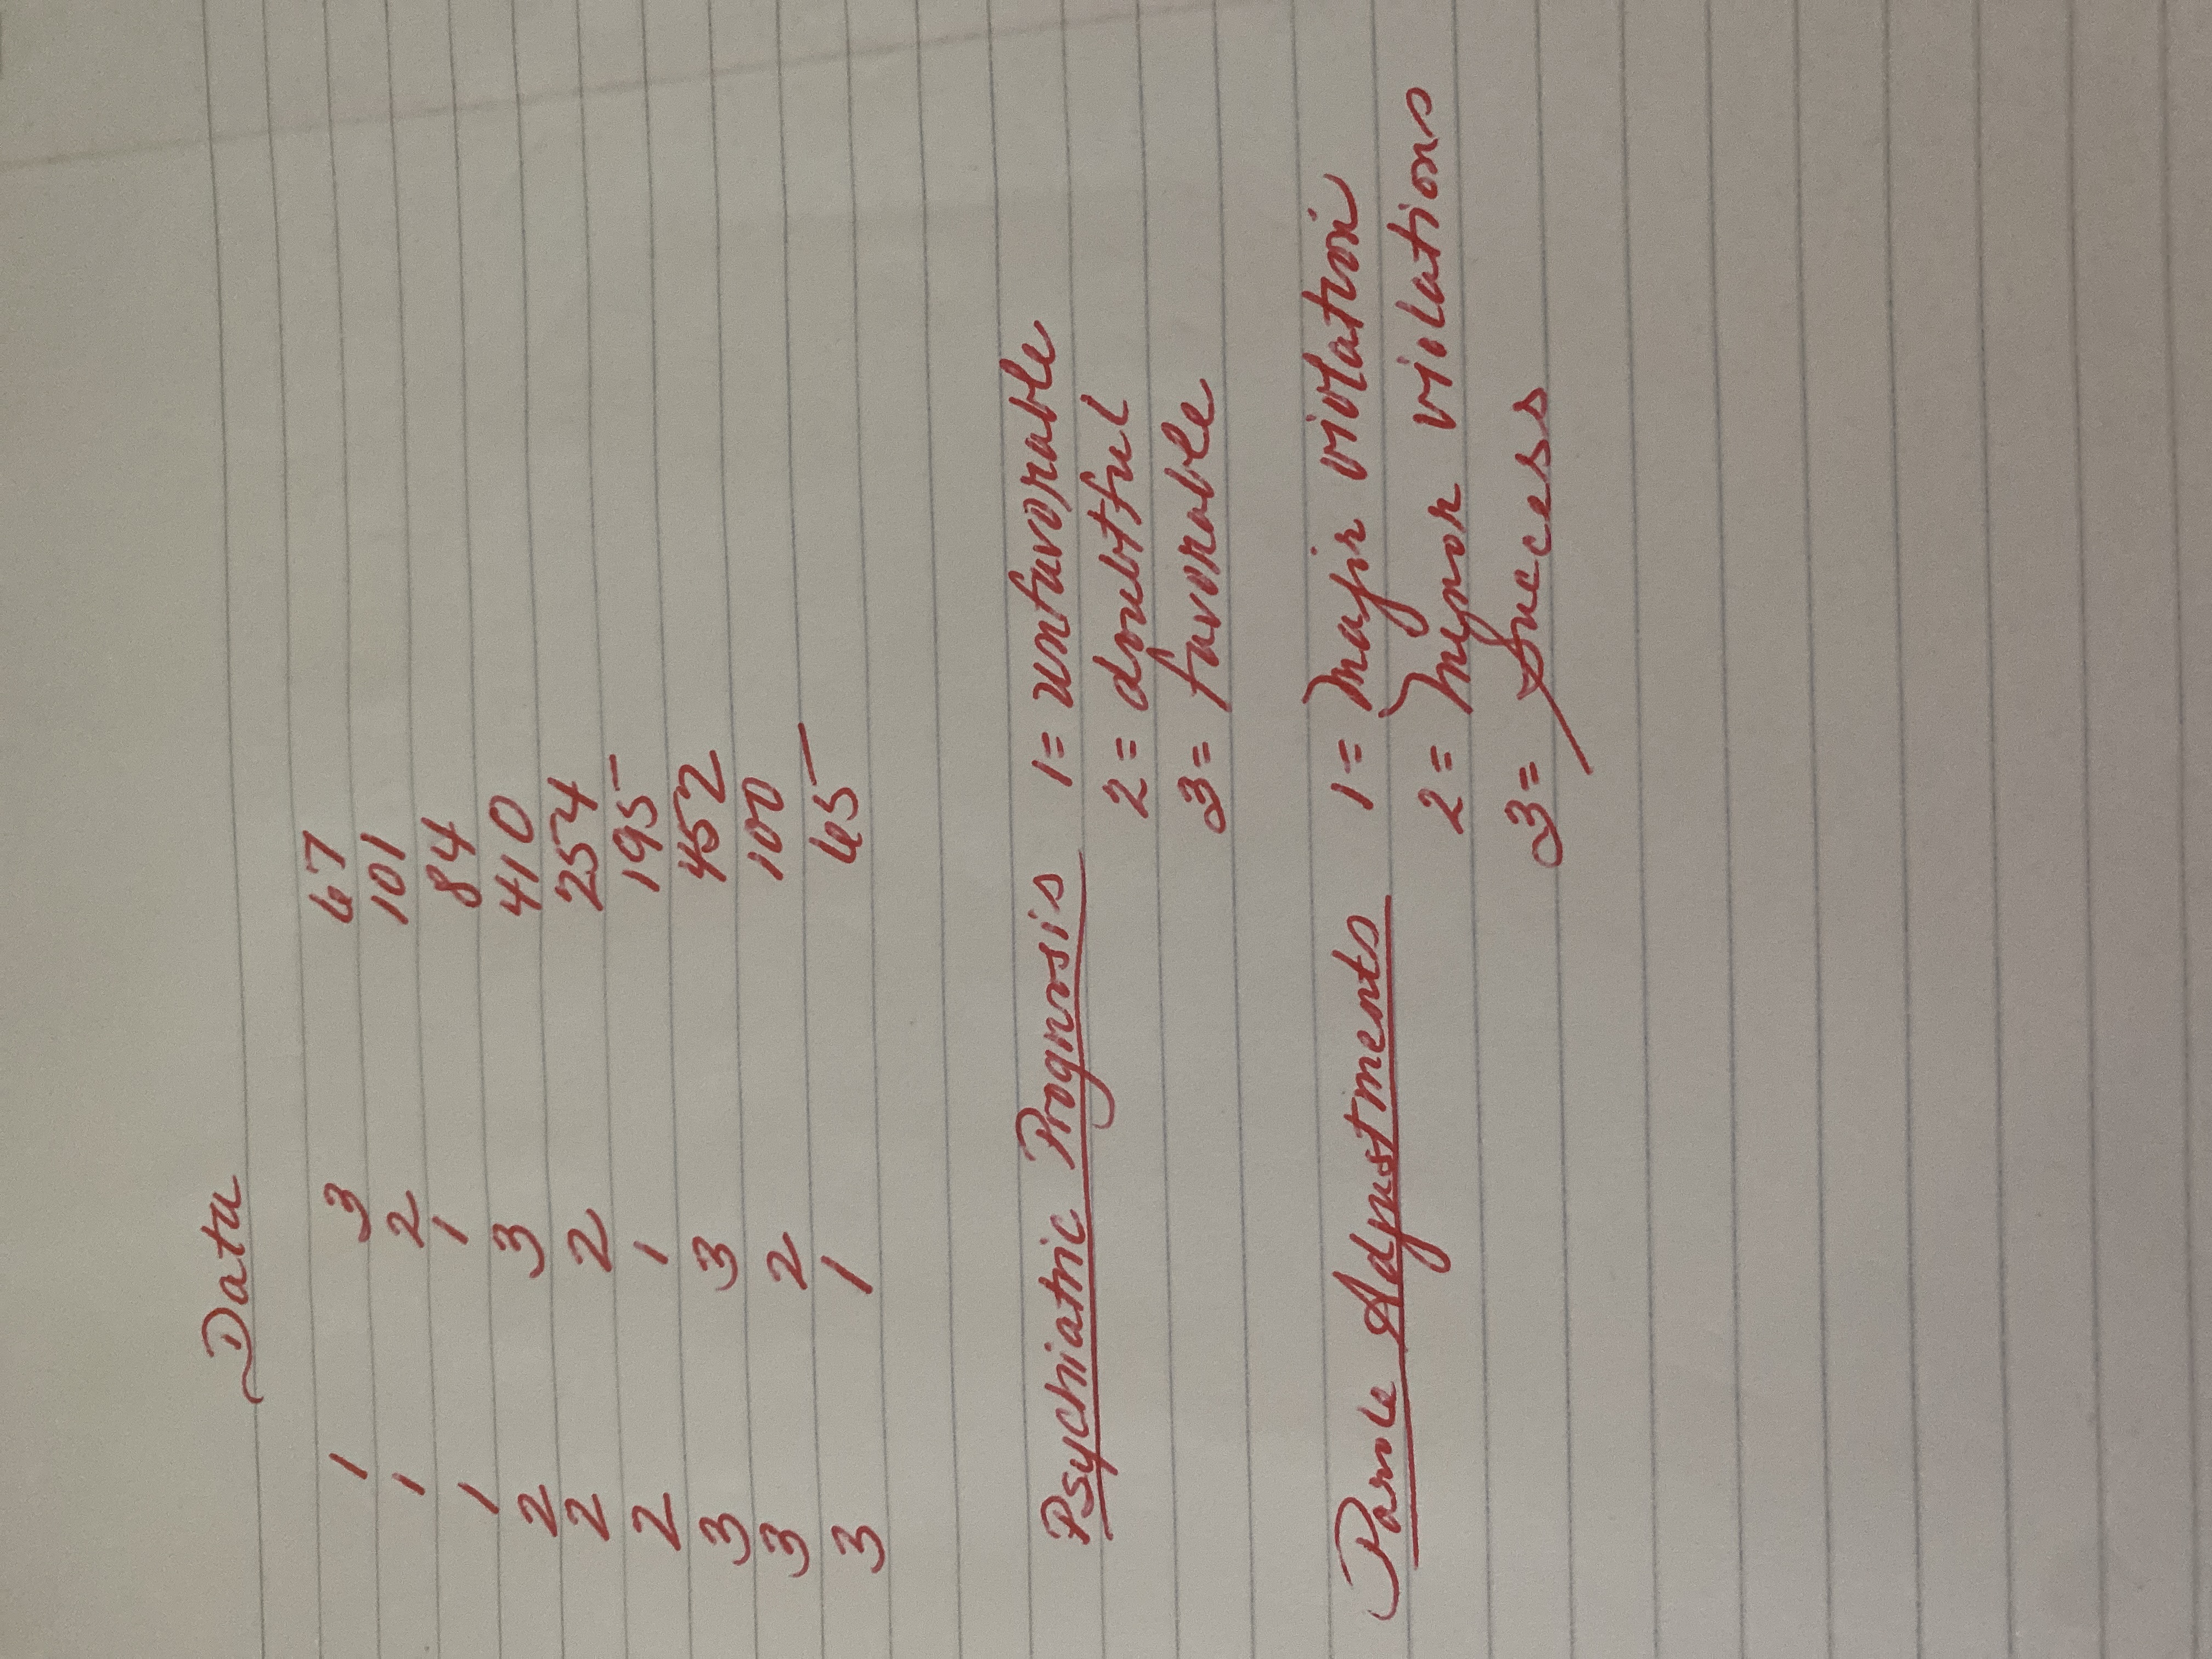 Data
1 3 67
1 2 101
1 1 84
2 3 410
2 2 254
2 1 195
3 3 452
3 2 100
3 1 65
Psychiatric Prognosis 1= unfavorable
2= doubtful
3= favorable
Parole Adjustments 1= Major violation
2= Mynor violations
3= Success